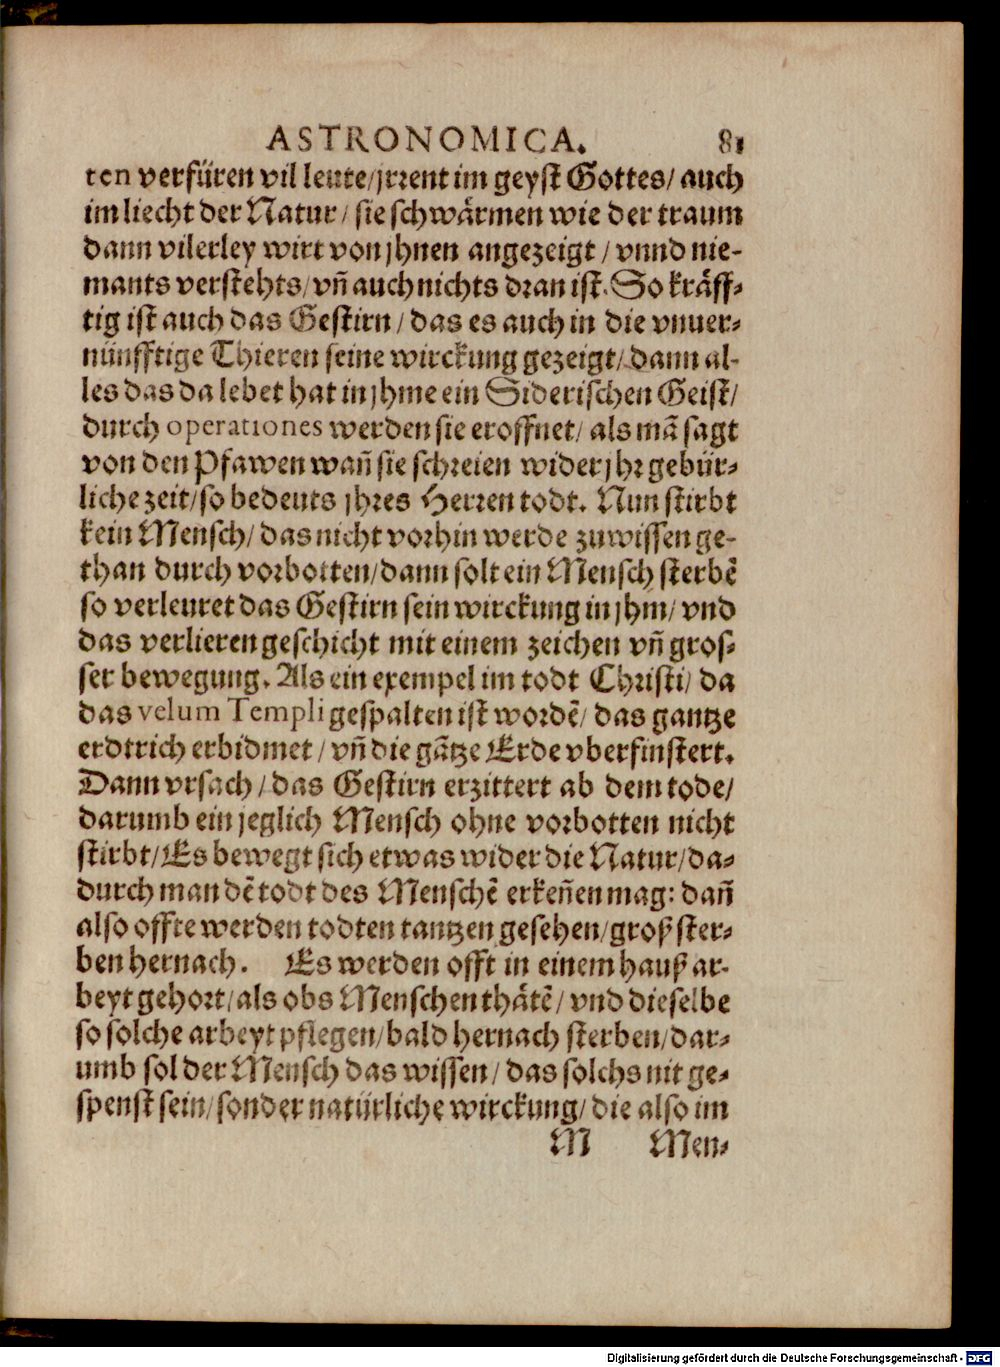 ASTRONOMICA. 81
ten verfüren vil leute/jrrent im geyst Gottes/ auch
im liecht der Natur / sie schwärmen wie der traum
dann vilerley wirt von jhnen angezeigt / vnnd nie-
mants verstehts/ vñ auch nichts dran ist. So kräff-
tig ist auch das Gestirn / das es auch in die vnuer-
nünfftige Thieren seine wirckung gezeigt/ dann al-
les das da lebet hat in jhme ein Siderischen Geist/
durch operationes werden sie eroffnet/ als mã sagt
von den Pfawen wañ sie schreien wider jhr gebür-
liche zeit/so bedeuts jhres Herren todt. Nun stirbt
kein Mensch/ das nicht vorhin werde zuwissen ge-
than durch vorbotten/dann solt ein Mensch sterbẽ
so verleuret das Gestirn sein wirckung in jhm/ vnd
das verlieren geschicht mit einem zeichen vñ gros-
ser bewegung. Als ein exempel im todt Christi/ da
das velum Templi gespalten ist wordẽ/ das gantze
erdtrich erbidmet / vñ die gãtze Erde vberfinstert.
Dann vrsach / das Gestirn erzittert ab dem tode/
darumb ein jeglich Mensch ohne vorbotten nicht
stirbt/ Es bewegt sich etwas wider die Natur/da-
durch man dẽ todt des Menschẽ erkeñen mag: dañ
also offte werden todten tantzen gesehen/groß ster-
ben hernach. Es werden offt in einem hauß ar-
beyt gehort/als obs Menschen thätẽ / vnd dieselbe
so solche arbeyt pflegen/bald hernach sterben/dar-
umb sol der Mensch das wissen / das solchs nit ge-
spenst sein/sonder natürliche wirckung/ die also im
M Men-
Digitalisierung gefördert durch die Deutsche Forschungsgemeinschaft - DFG